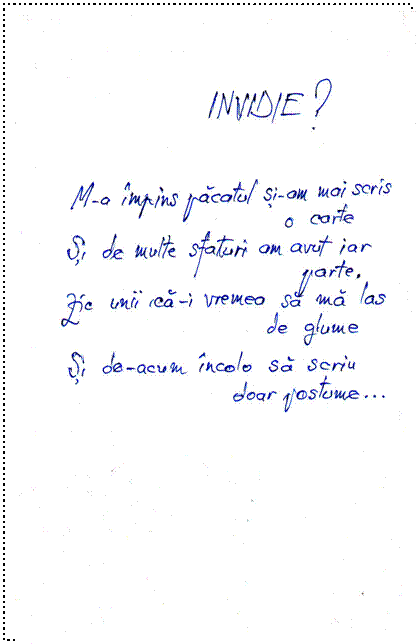 INVIDIE?
M-a împins păcatul și-am mai scris
o carte
Și de multe sfaturi am avut iar
parte.
Zic unii că-i vremea să mă las
de glume
Și de-acum încolo să scriu
doar postume...